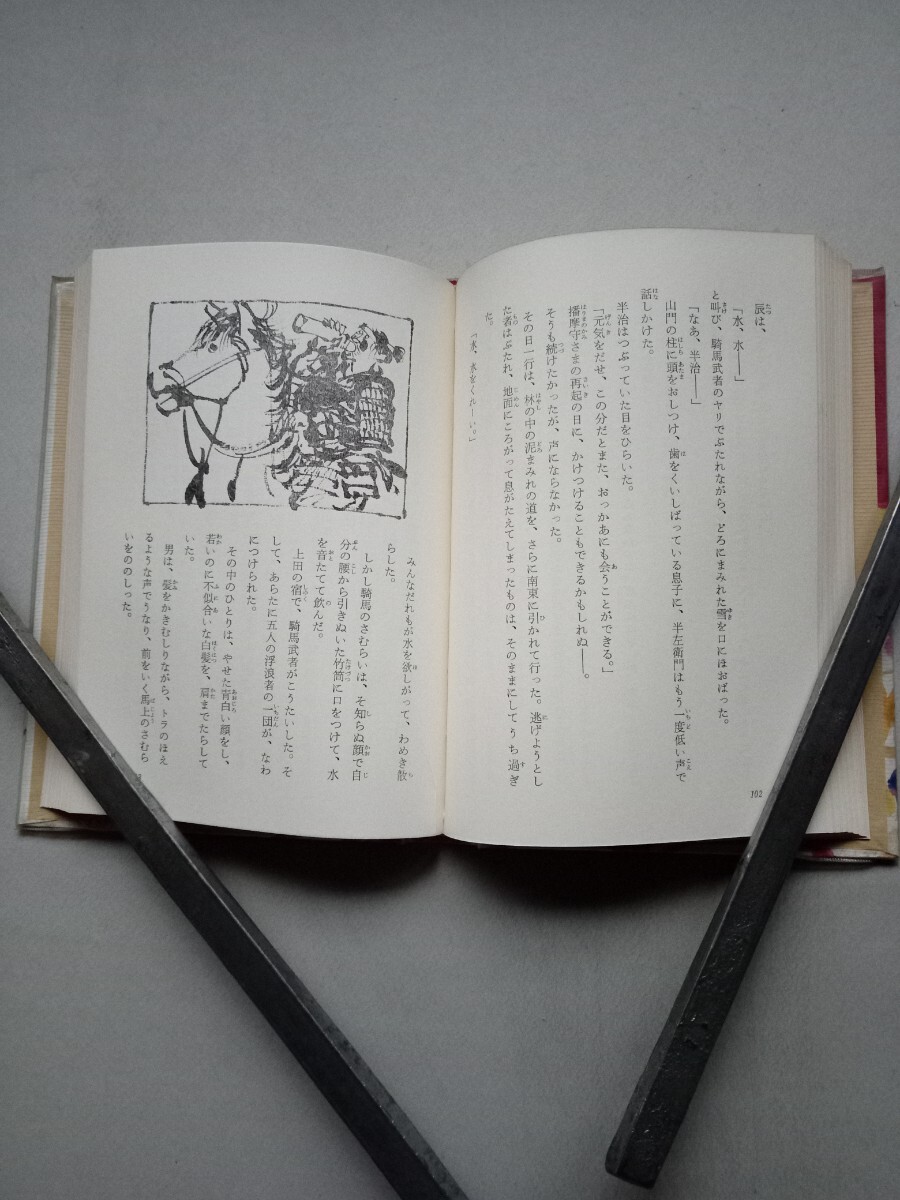 辰は、
「水、水――」
と叫び、騎馬武者のヤリでぶたれながら、どろにまみれた雪を口にほおばった。
「なあ、半治――」
山門の柱に頭をおしつけ、歯をくいしばっている息子に、半左衛門はもう一度低い声で
話しかけた。
半治はつぶっていた目をひらいた。
「元気をだせ、この分だとまた、おっかあにも会うことができる。」
播磨守さまの再起の日に、かけつけることもできるかもしれぬ――。
そうも続けたかったが、声にならなかった。
その日一行は、林の中の泥まみれの道を、さらに南東に引かれて行った。逃げようとし
た者はぶたれ、地面にころがって息がたえてしまったものは、そのままにしてうち過ぎ
た。
「水、水をくれーい。」
102
みんなだれもが水を欲しがって、わめき散
らした。
しかし騎馬のさむらいは、そ知らぬ顔で自
分の腰から引きぬいた竹筒に口をつけて、水
を音たてて飲んだ。
上田の宿で、騎馬武者がこうたいした。そ
して、あらたに五人の浮浪者の一団が、なわ
につけられた。
その中のひとりは、やせた青白い顔をし、
若いのに不似合いな白髪を、肩までたらして
いた。
男は、髪をかきむしりながら、トラのほえ
るような声でうなり、前をいく馬上のさむら
いをののしった。